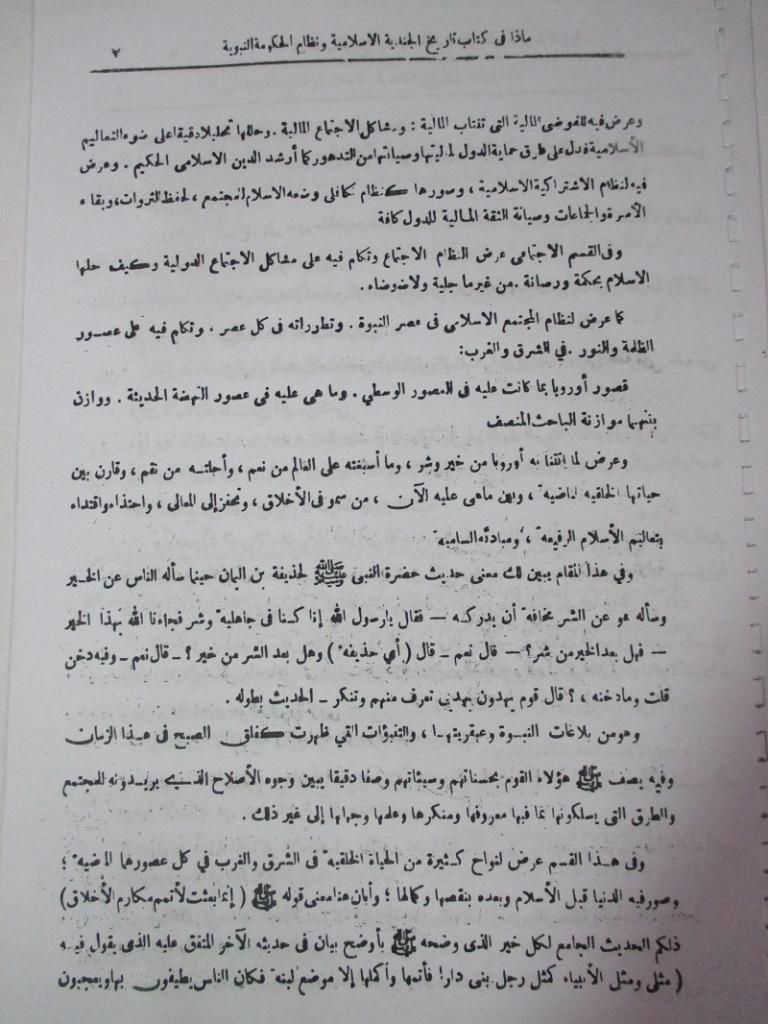 ماذا فى كتاب تاريخ الجندية الاسلامية ونظام الحكومة النبوية ٧
وعرض فيه للفوضى المالية التى تنتاب المالية : ومشاكل الاجتماع المالية . وحللها تحليلا دقيقا على ضوء التعاليم
الأسلامية فدل على طرق حماية الدول لماليتها وصيانتها من التدهور كما أرشد الدين الاسلامى الحكيم . وعرض
فيه لنظام الاشتراكية الاسلامية ، وصورها كنظام تكافلى وضعه الاسلام للمجتمع ، لحفظ الثروات ، وبقاء
الأسرة والجماعات وصيانة الثقة المالية للدول كافة
وفى القسم الاجتماعى عرض النظام الاجتماع وتكلم فيه على مشاكل الاجتماع الدولية وكيف حلها
الاسلام بحكمة ورصانة . من غير ما جلبة ولا ضوضاء .
كما عرض لنظام المجتمع الاسلامى فى عصر النبوة . وتطوراته فى كل عصر . وتكلم فيه على عصور
الظلمة والنور . فى الشرق والغرب :
فصور أوروبا بما كانت عليه فى العصور الوسطي . وما هى عليه فى عصور النهضة الحديثة . ووازن
بينهما موازنة الباحث المنصف
وعرض لما اتتنا به أوروبا من خير وشر ، وما أسبغته على العالم من نعم ، وأحلته من نقم ، وقارن بين
حياتها الخلقيه الماضيه ، وبين ماهى عليه الآن ، من سمو فى الأخلاق ، وتحفز إلى المعالى ، واحتذاء واقتداء
بتعاليم الأسلام الرفيعه ، ومبادئه الساميه
وفي هذا المقام يبين لك معنى حديث حضرة النبى ﷺ لحذيفة بن اليمان حينما سأله الناس عن الخير
وسأله هو عن الشر مخافة أن يدركه — فقال يارسول الله إنا كنا فى جاهلية وشر فجاءنا الله بهذا الخير
— فهل بعد الخير من شر ؟ — قال نعم — قال ( أي حذيفه ) وهل بعد الشر من خير ؟ — قال نعم — وفيه دخن
قلت وما دخنه ، ؟ قال قوم يهدون بهديى تعرف منهم وتنكر — الحديث بطوله .
وهو من بلاغات النبوة وعبقريتها ، والتنبؤات التي ظهرت كفلق الصبح فى هذا الزمان
وفيه يصف ﷺ هؤلاء القوم بحسناتهم وسيئاتهم وصفا دقيقا يبين وجوه الأصلاح الذى يريدونه للمجتمع
والطرق التى يسلكونها بما فيها معروفها ومنكرها وعلمها وجهلها إلى غير ذلك .
وفى هذا القسم عرض لنواح كثيرة من الحياة الخلقيه فى الشرق والغرب في كل عصورهما الماضيه ؛
وصور فيه الدنيا قبل الأسلام وبعده بنقصها وكمالها ؛ وأبان هنا معنى قوله ﷺ ( إنما بعثت لأتمم مكارم الأخلاق )
ذلكم الحديث الجامع لكل خير الذى وضحه ﷺ بأوضح بيان فى حديثه الآخر المتفق عليه الذى يقول فيه
( مثلى ومثل الأنبياء كمثل رجل بنى دارا فأتمها وأكملها إلا موضع لبنه فكان الناس يطيفون بها ويعجبون